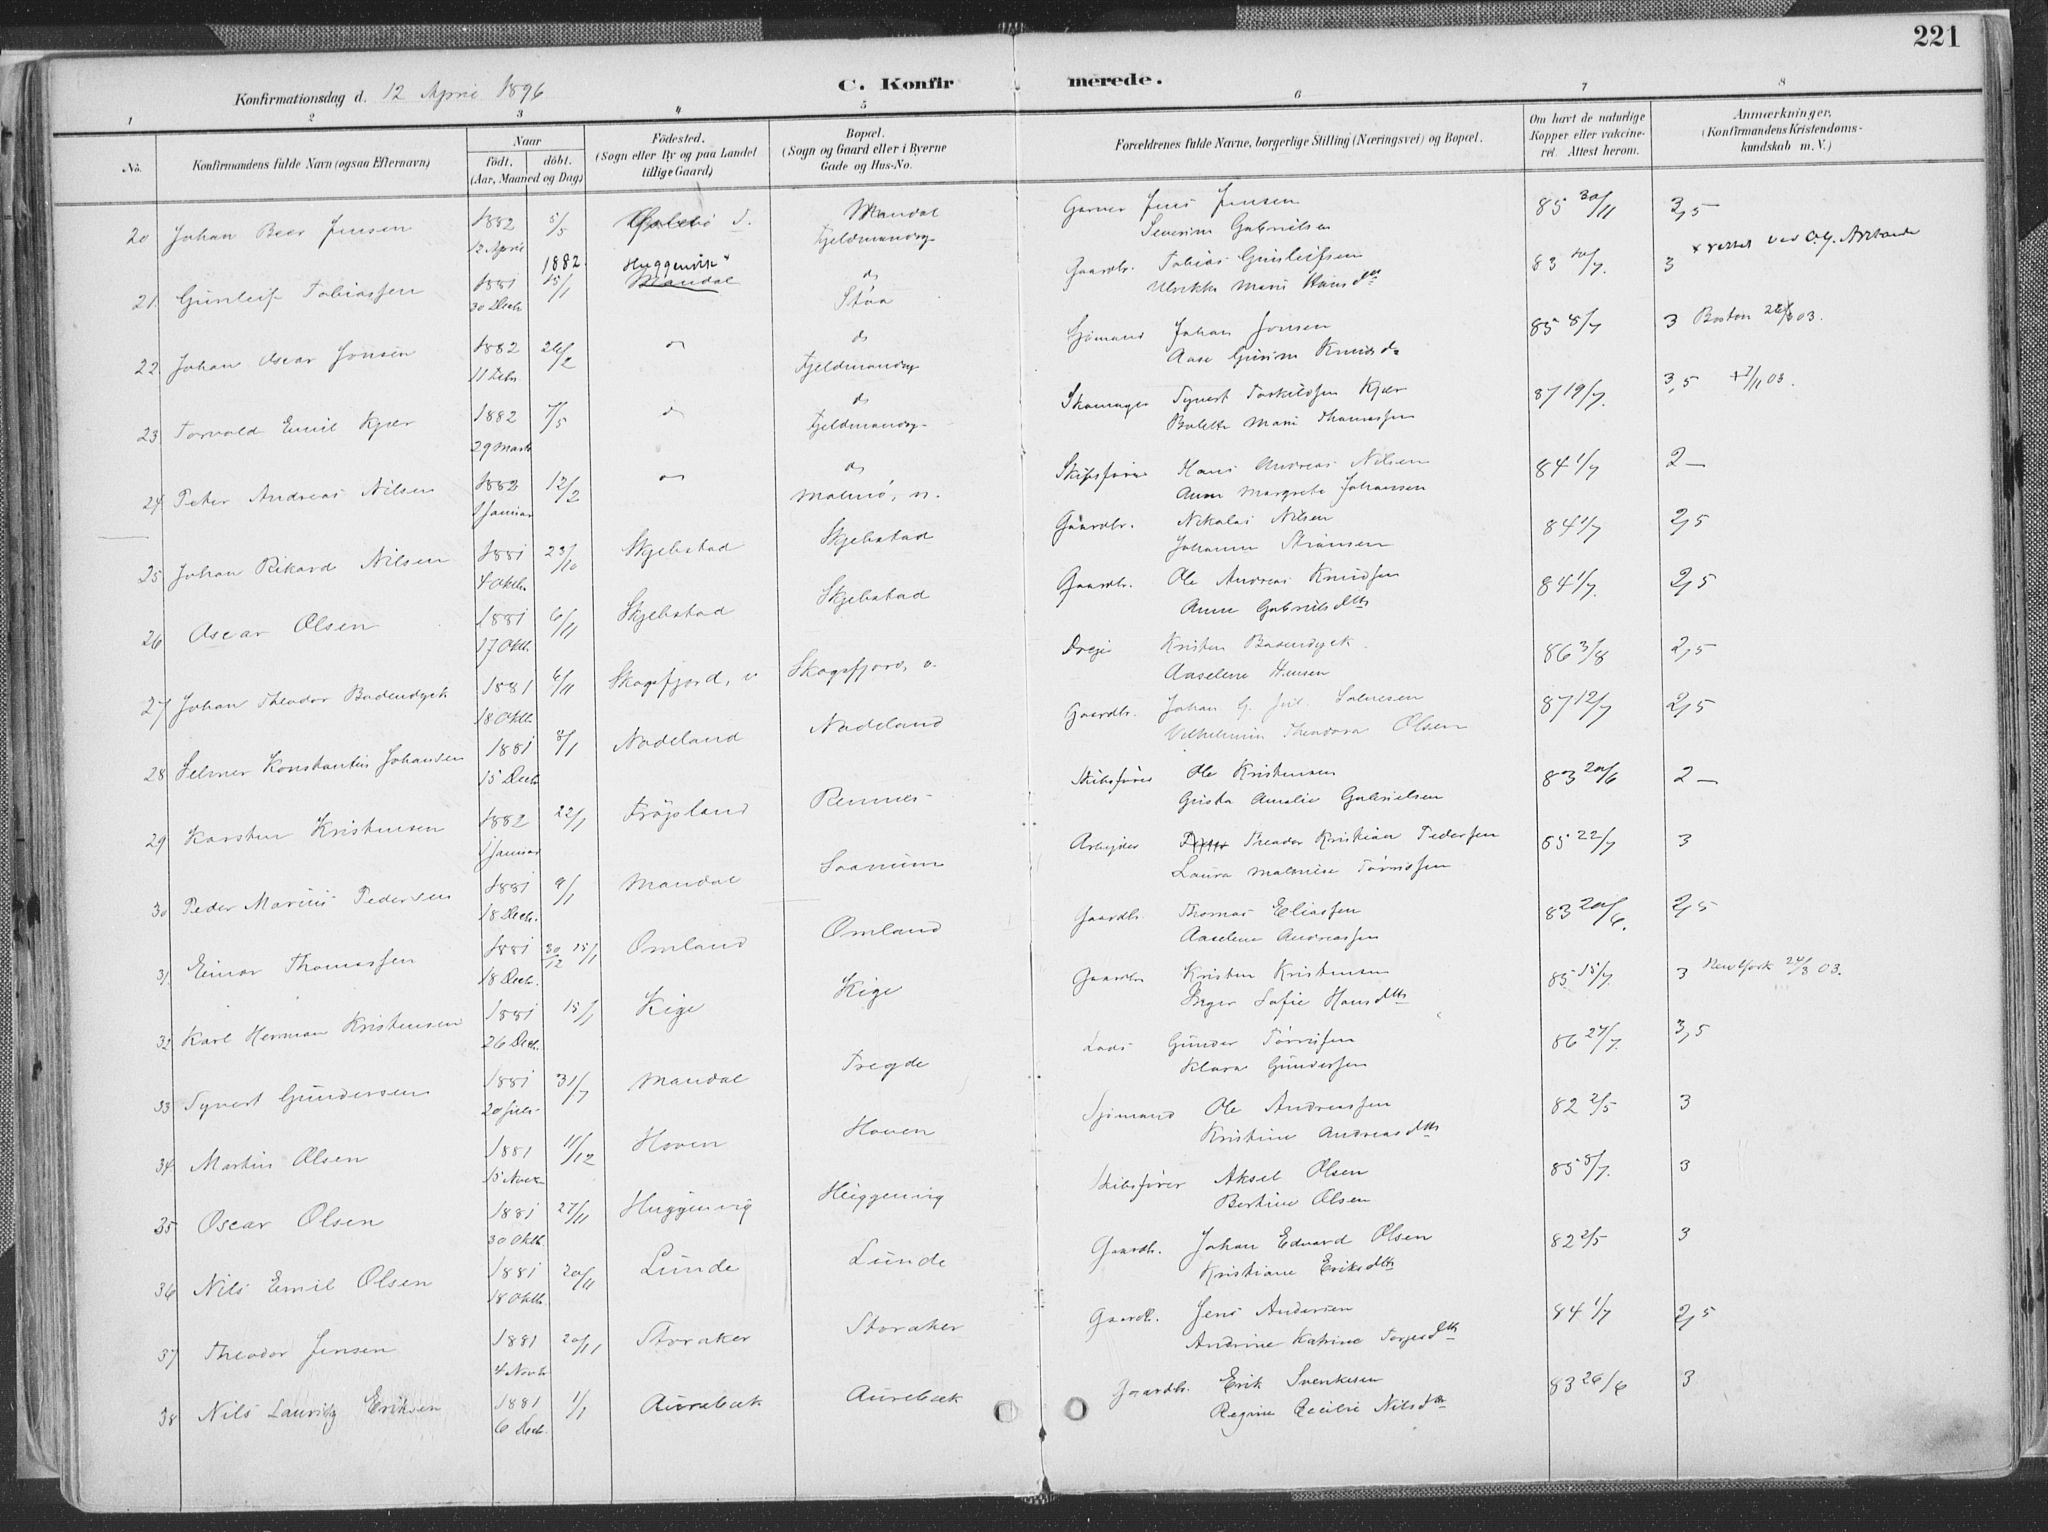 221
Konfirmationsdag d. 12 April 1896
C. Konfirmerede.
1 2 3 4 5 6 7 8
No. Konfirmandens fulde Navn (ogsaa Efternavn) Naar födt. döbt. (Aar, Maaned og Dag) Födested. (Sogn eller By og paa Landet tillige Gaard) Bopæl. (Sogn og Gaard eller i Byerne Gade og Hus-No. Forældrenes fulde Navne, borgerlige Stilling (Næringsvei) og Bopæl. Om havt de naturlige Kopper eller vaccineret. Attest herom. Anmærkninger. (Konfirmandens Kristendomskundskab m. V.)
20 Johan Beer Jensen 1882 5/5 Mandal Garver Jens Jensen 85 30/11 2,5
12 April Severine Gabrielsen
21 Gunleif Tobiassen 1881 1882 15/1 Huggenvik Mandal do Gaardbr. Tobias Gunleifsen 83 3
30 Decb. Ulrikke Marie
22 Johan Oscar Jonsen 1882 26/2 do do Sjömand Johan Jonsen 85 8/7 3 Boston 03.
11 Febr.
23 Torvald Emil Kjær 1882 7/5 do do Skomager Tyvert Torkildsen Kjær 87 19/7. 3,5 03.
29 Marts Bolette Marie Thomassen
24 Peter Andreas Nilsen 1882 12/2 do do Malmö, Skibsförer Hans Andreas Nilsen 84 1/7 2 —
1 Januar Anne Margrete Johansen
25 Johan Rikard Nilsen 1881 23/10 Skjebstad Skjebstad Gaardbr. Nikolai Nilsen 84 1/7 2,5
4 Oktb. Johanne
26 Oscar Olsen 1881 6/11 Skjebstad Skjebstad Gaardbr. Ole Andreas Knudsen 84 1/7. 2,5
17 Oktb. Anne Gabrielsdtt
27 Johan Theodor Badendyck 1881 6/11 Skogsfjord, v Skogsfjord, v. Kristen Badendyck 86 3/8 2,5
18 Oktb. Aaselene Hansen
28 Selmer Konstantin Johansen 1881 8/1 Nodeland Nodeland Gaardbr. Johan G. 87 12/7 2,5
15 Decb. Vilhelmine Theodora Olsen
29 Karsten Kristensen 1882 22/1 Fröjsland Rennes Skibsförer Ole Kristensen 83 20/6 2 —
1 Januar Gusta Amalie Gabrielsen
30 Peder Marius Pedersen 1881 8/1 Mandal Saanum Arbejder Theodor Kristian Pedersen 85 22/7 3
18 Decb. Laura
31 Einar Thomassen 1881 30/12 15/1 Omland Omland Gaardbr. Thomas Eliassen 83 20/6. 2,5
18 Decb. Aaselene Andreassen
32 Karl Herman Kristensen 1881 15/1 Kige Kige Gaardbr. Kristen Kristensen 85 15/7. 3 New York 24/3 03.
26 Decb. Inger Sofie Hansdtt
33 Tyvert Gundersen 1881 31/7 Mandal Tregde Lods Gunder 86 27/7. 3,5
20 Juli Klara Gundersen
34 Martin Olsen 1881 11/12 Hoven Hoven Sjömand Ole Andreassen 82 2/5 3
15 Novb. Kristine Andreasdtt
35 Oscar Olsen 1881 27/11 Huggenvig Huggenvig Skibsförer Aksel Olsen 85 8/7. 3
30 Oktb. Bertine Olsen
36 Nils Emil Olsen 1881 20/11 Lunde Lunde Gaardb. Johan Edvard Olsen 82 2/5 3
18 Oktb. Kristiane Eriksdtt
37 Theodor Jensen 1881 20/11 Storaker Storaker Gaardb. Jens Andersen 84 1/7 2,5
4 Novb. Andrine Katrine Torjesdtt
38 Nils Lauritz Eriksen 1881 1/1 Aurebæk Aurebæk Gaardbr. Erik Svenkesen 83 26/6 3
6 Decb. Regine Cecilie Nilsdtr